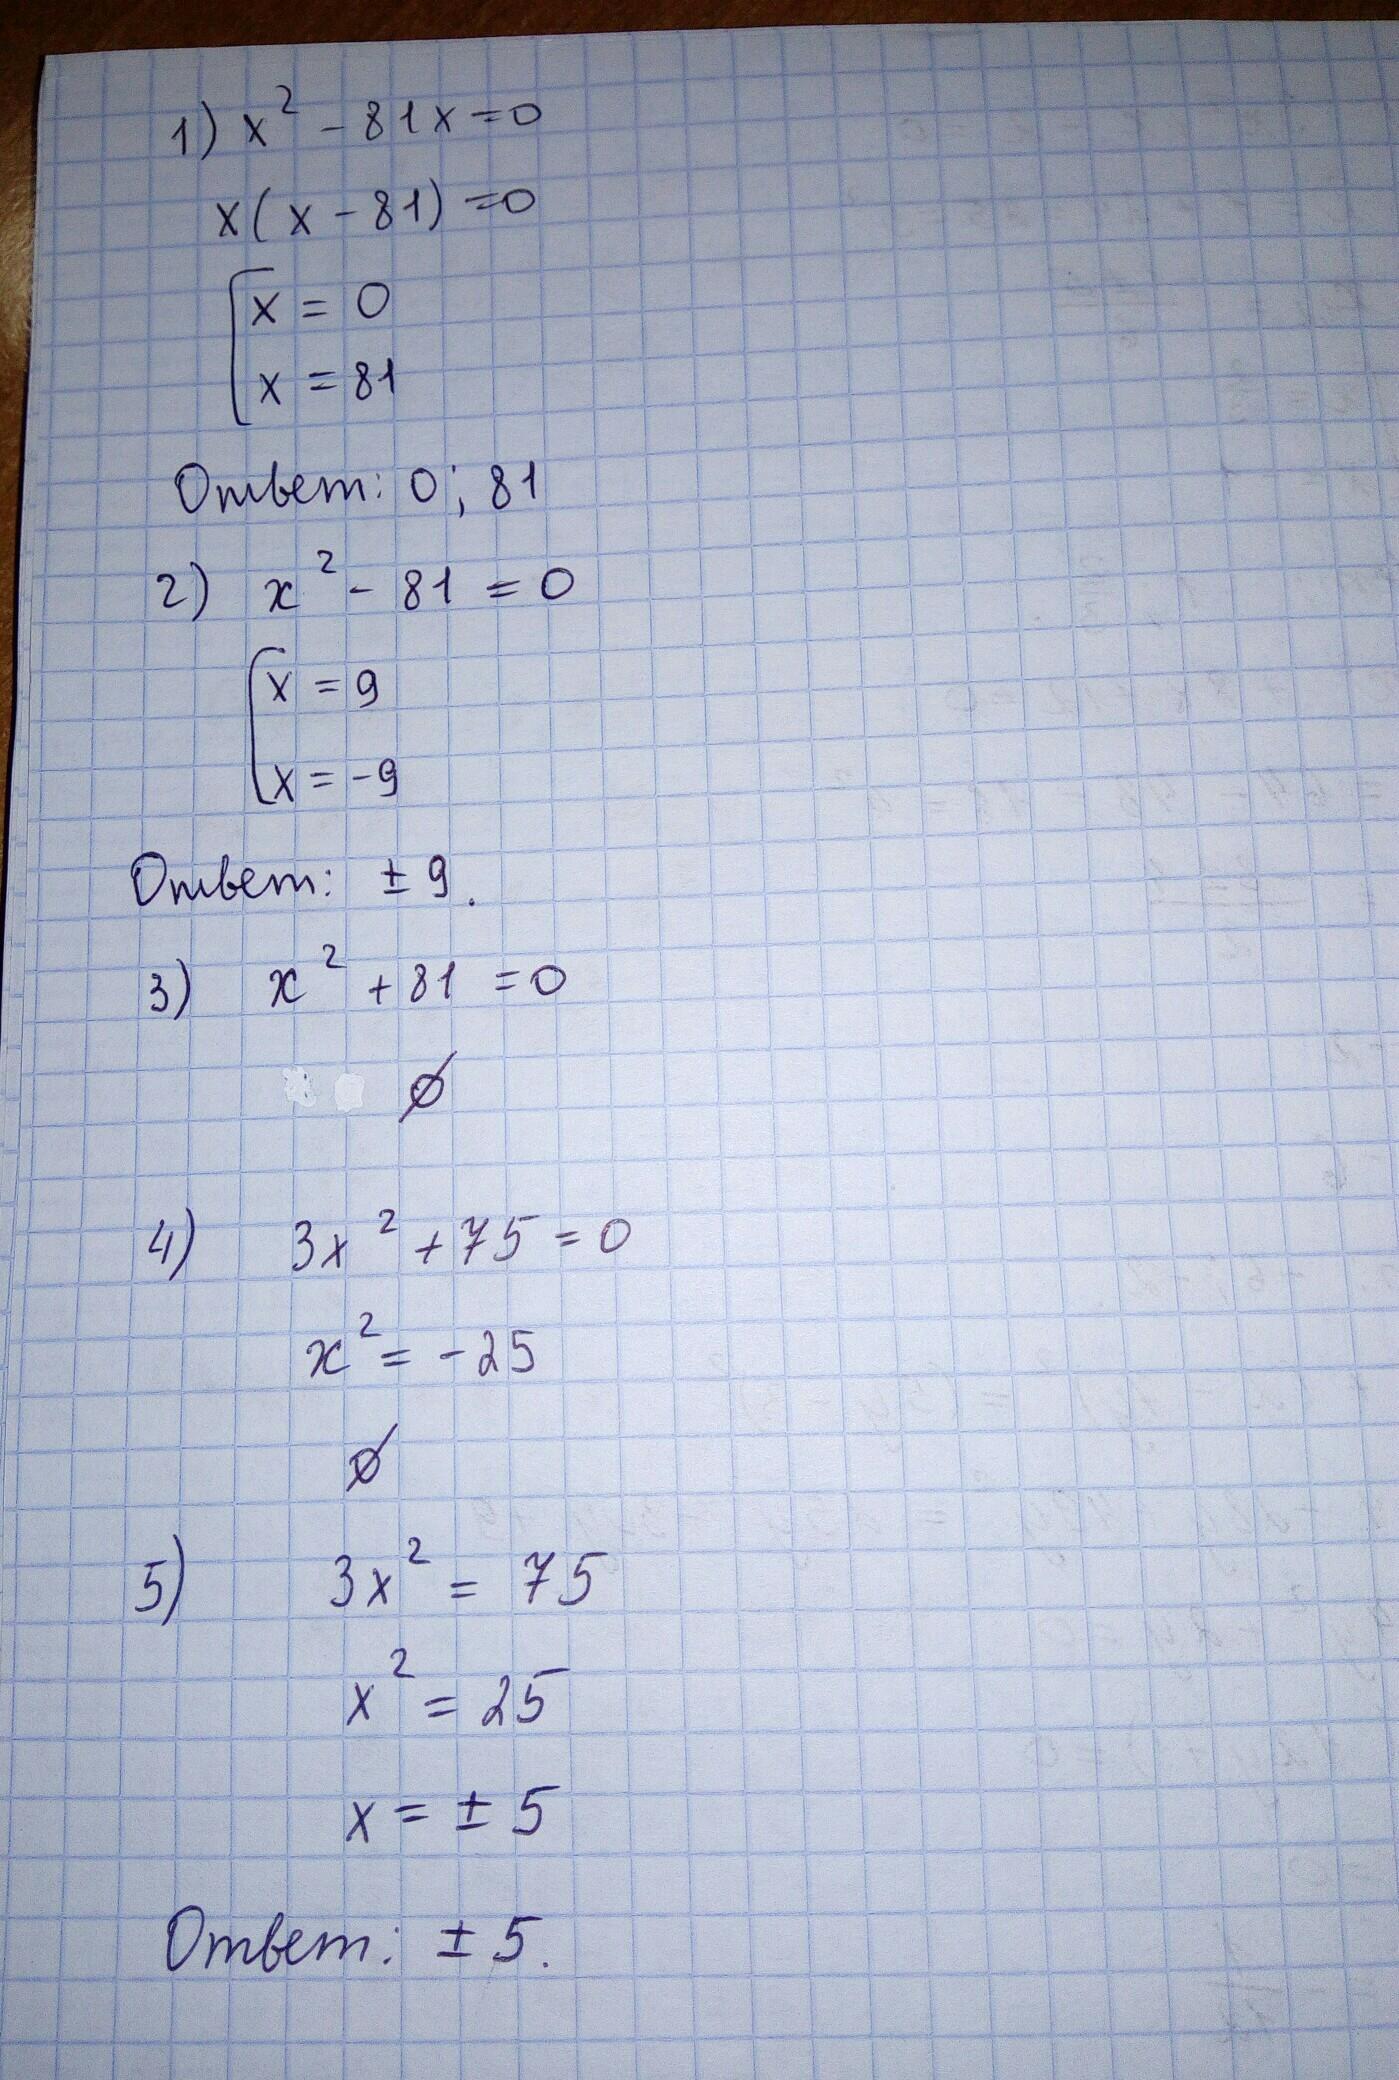 1) x² - 81x = 0
x(x - 81) = 0
[x = 0
x = 81
Ответ: 0; 81
2) x² - 81 = 0
[x = 9
x = -9
Ответ: ± 9.
3) x² + 81 = 0
∅
4) 3x² + 75 = 0
x² = -25
∅
5) 3x² = 75
x² = 25
x = ± 5
Ответ: ± 5.